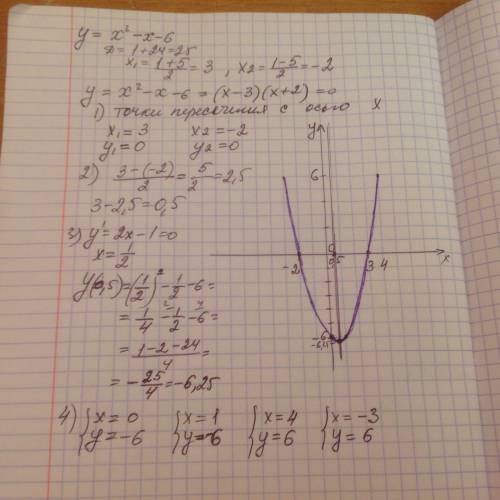 y = x² - x - 6
D = 1 + 24 = 25
x₁ = (1+5)/2 = 3 , x₂ = (1-5)/2 = -2
y = x² - x - 6 = (x-3)(x+2) = 0
1) точки пересечения с осью x
x₁ = 3 x₂ = -2
y₁ = 0 y₂ = 0
2) (3-(-2))/2 = 5/2 = 2,5
3 - 2,5 = 0,5
3) y' = 2x - 1 = 0
x = 1/2
y(0,5) = (1/2)² - 1/2 - 6 =
= 1/4 - 1/2 - 6 =
= (1-2-24)/4 =
= -25/4 = -6,25
4) {x = 0 {x = 1 {x = 4 {x = -3
{y = -6 {y = -6 {y = 6 {y = 6
y
6
0
-2 0,5 3 4 x
-6
-6,25